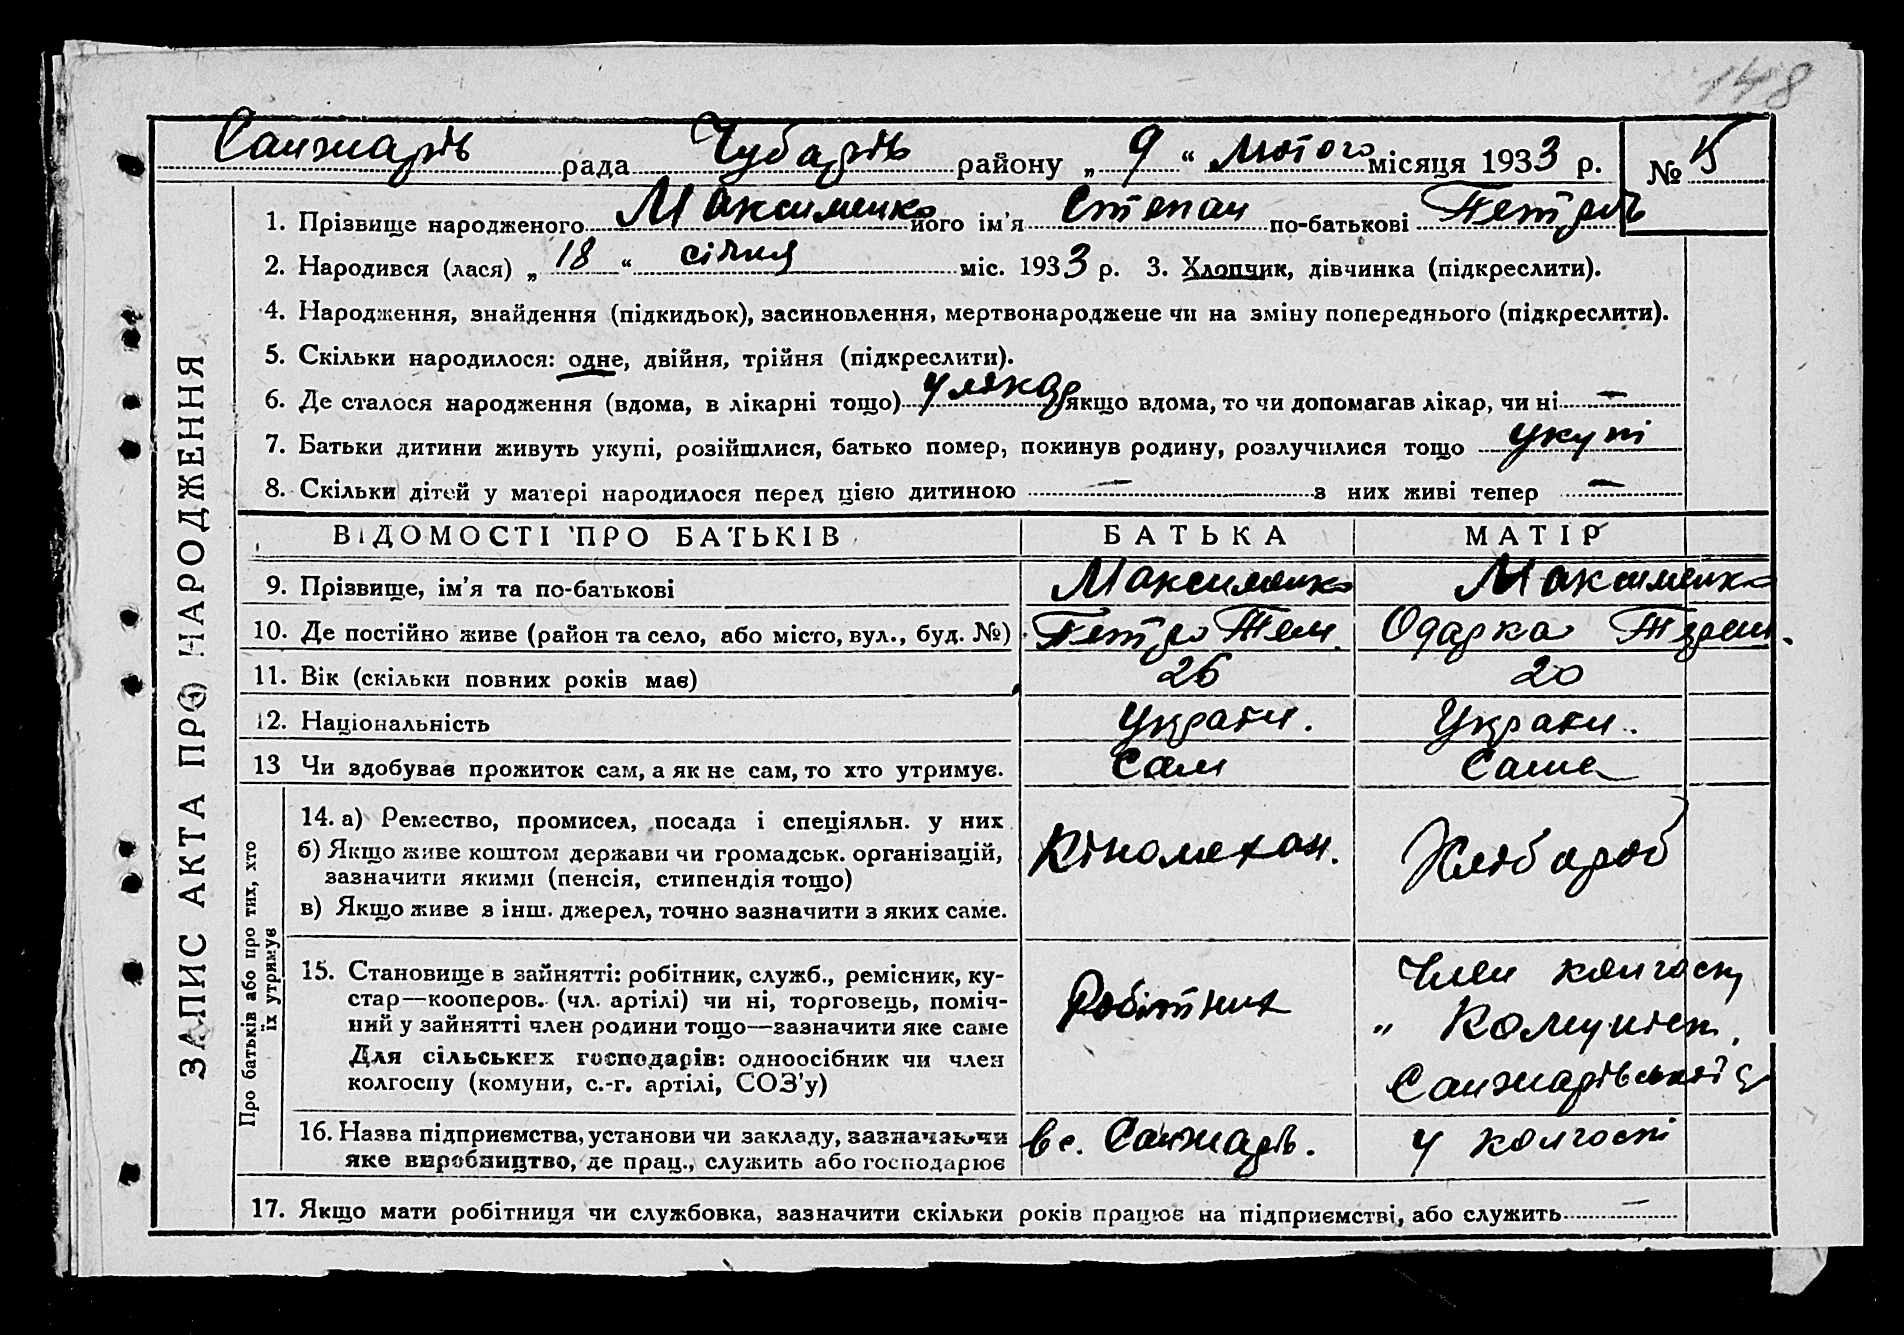 148
Санжарів рада Чубарів району „ 9 “ Лютого місяця 1933 р. № 5
1. Прізвище народженого Максименко його ім’я Степан по-батькові Петров
2. Народився (лася) „ 18 “ січня міс. 1933 р. 3. Хлопчик, дівчинка (підкреслити).
4. Народження, знайдення (підкидьок), засиновлення, мертвонароджене чи на зміну попереднього (підкреслити).
5. Скільки народилося: одне, двійня, трійня (підкреслити).
6. Де сталося народження (вдома, в лікарні тощо) У лікар якщо вдома, то чи допомагав лікар, чи ні —
7. Батьки дитини живуть укупі, розійшлися, батько помер, покинув родину, розлучилися тощо укупі
8. Скільки дітей у матері народилося перед цією дитиною — з них живі тепер —
ЗАПИС АКТА ПРО НАРОДЖЕННЯ
ВІДОМОСТІ ПРО БАТЬКІВ БАТЬКА МАТІР
9. Прізвище, ім’я та по-батькові Максименко Максименко
10. Де постійно живе (район та село, або місто, вул., буд. №) Петро Одарка
11. Вік (скільки повних років має) 26 20
12. Національність Україн. Україн.
13 Чи здобуває прожиток сам, а як не сам, то хто утримує. Сам Сама
Про батьків або про тих, хто
їх утримує
14. а) Ремество, промисел, посада і спеціяльн. у них
б) Якщо живе коштом держави чи громадськ. організацій,
зазначити якими (пенсія, стипендія тощо)
в) Якщо живе з інш. джерел, точно зазначити з яких саме.
Кіномехан. Хлібороб
15. Становище в зайнятті: робітник, служб., ремісник, ку-
стар—кооперов. (чл. артілі) чи ні, торговець, поміч-
ний у зайнятті член родини тощо—зазначити яке саме
Для сільських господарів: одноосібник чи член
колгоспу (комуни, с.-г. артілі, СОЗ’у)
Робітник
Член колгоспу
„ Комуніст.
Санжарівської
16. Назва підприємства, установи чи закладу, зазначаючи
яке виробництво, де прац., служить або господарює
в с. Санжарів. У колгоспі
17. Якщо мати робітниця чи службовка, зазначити скільки років працює на підприємстві, або служить —